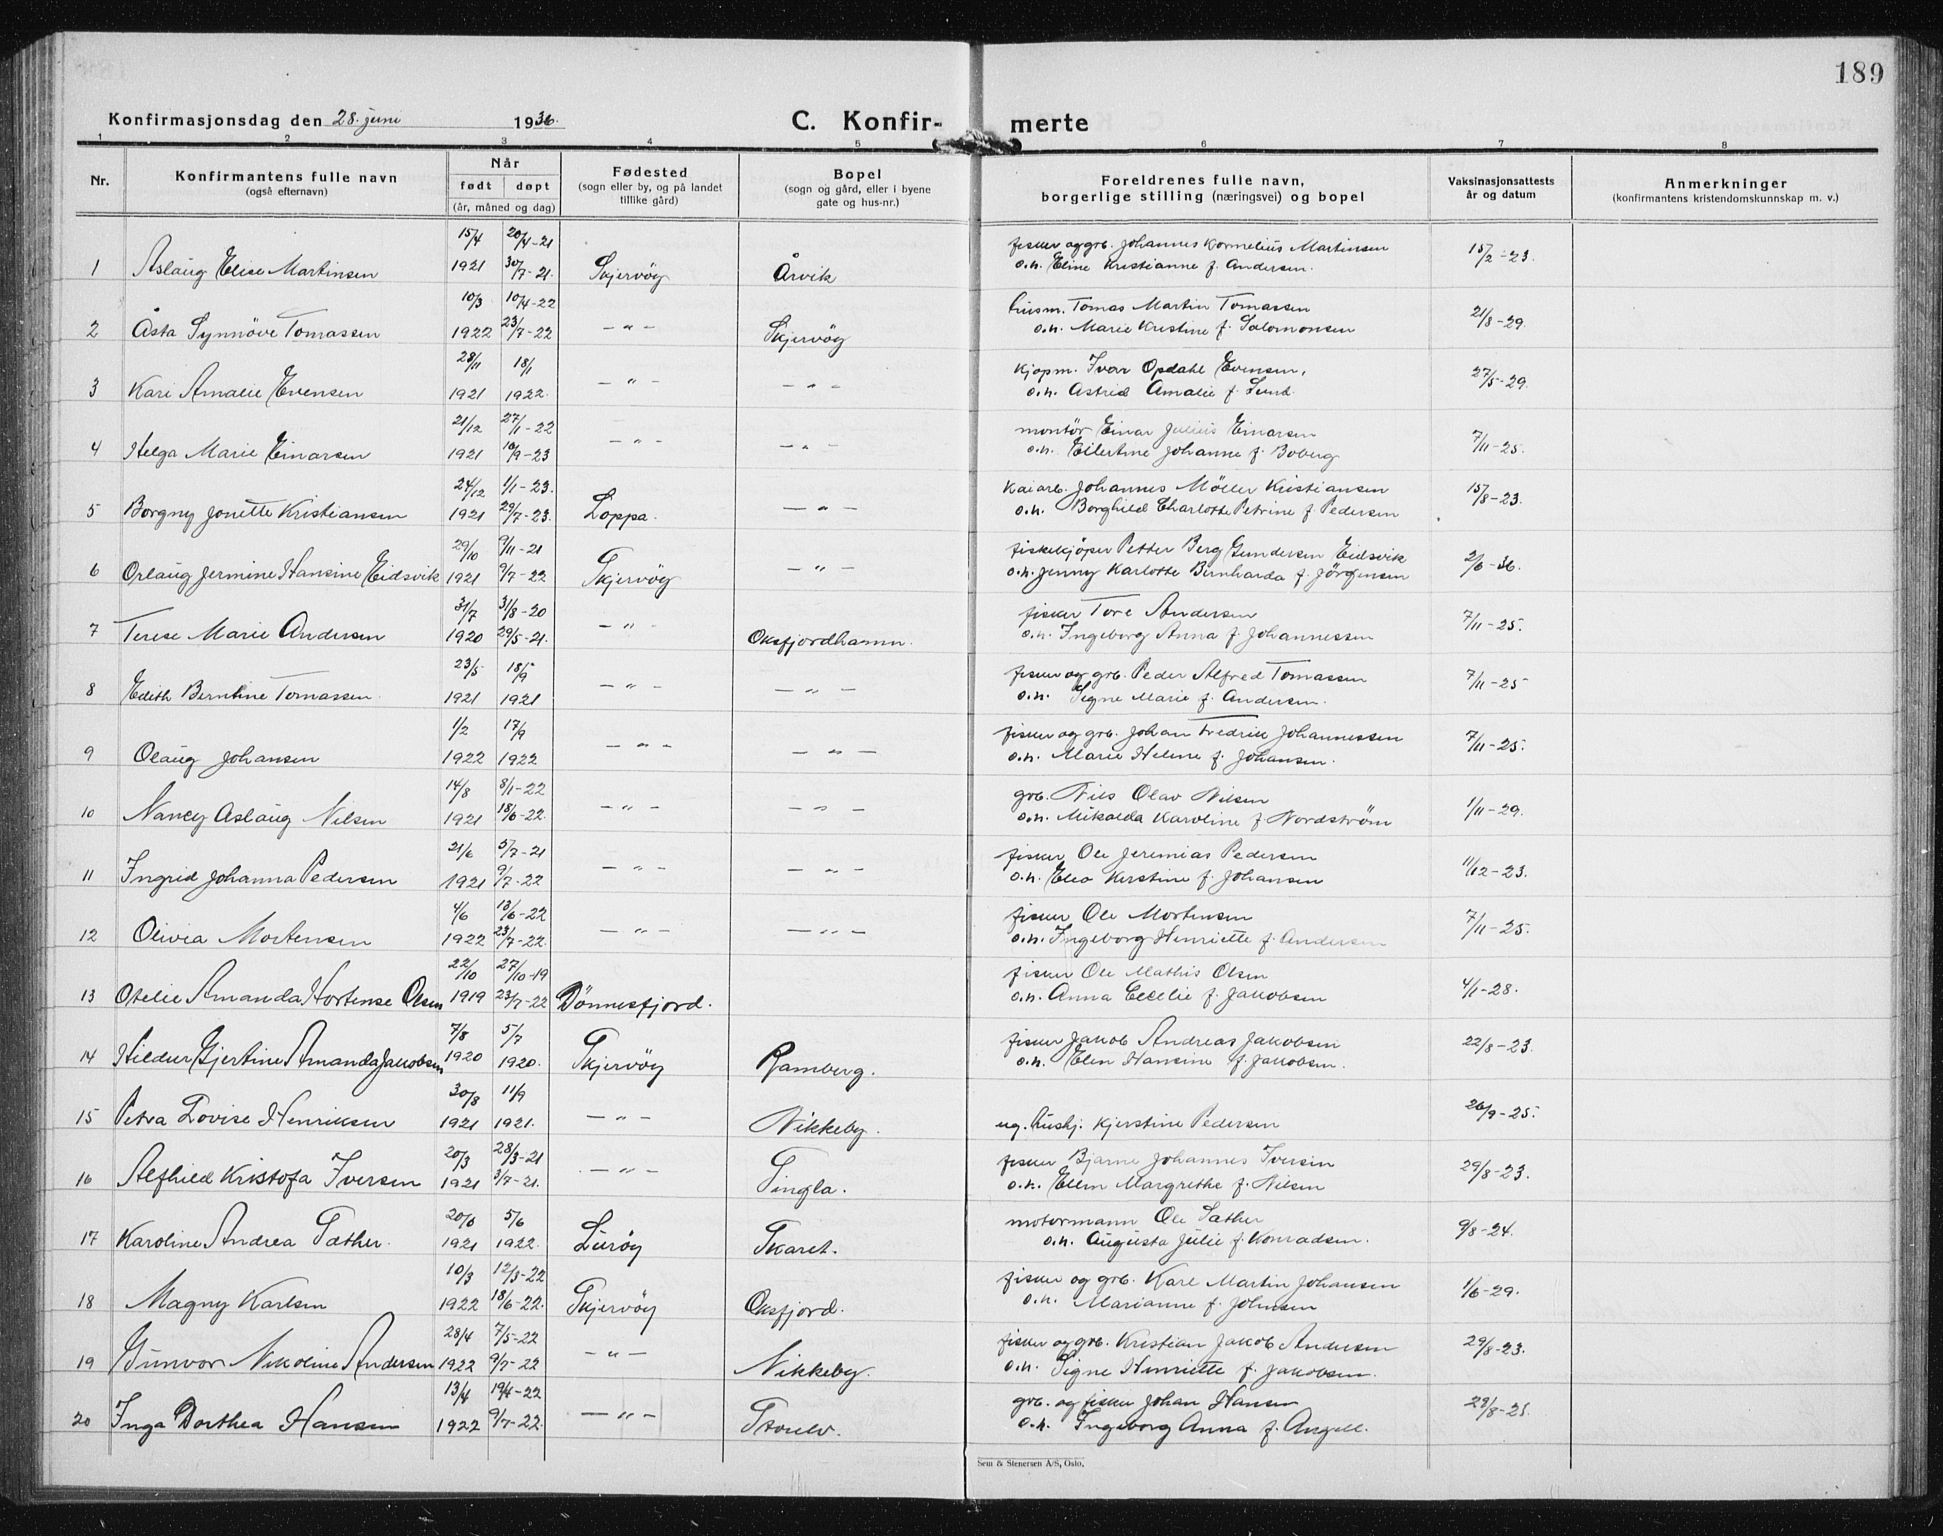 189
Konfirmasjonsdag den 28. juni 1936.
C. Konfir- merte
1 2 3 4 5 6 7 8
Nr.
Konfirmantens fulle navn
(også efternavn)
Når
født døpt
(år, måned og dag)
Fødested
(sogn eller by, og på landet
tillike gård)
Bopel
(sogn og gård, eller i byene
gate og hus-nr.)
Foreldrenes fulle navn,
borgerlige stilling (næringsvei) og bopel
Vaksinasjonsattests
år og datum
Anmerkninger
(konfirmantens kristendomskunnskap m. v.)
15/4 20/4-21 fisker og grb. Johannes Kornelius Martinsen 15/2-23.
1 Aslaug Elise Martinsen 1921 30/7-21. Skjervøy Årvik o.h. Eline Kristianne f. Andersen.
10/3 10/4-22 husm. Tomas Martin Tomassen 21/8-29.
2 Åsta Synnöve Tomassen 1922 23/7-22 -"- Skjervøy o.h. Marie Kristine f. Salomonsen
28/11 18/1 kjøpm. Ivar Opdahl Evensen, 27/5-29.
3 Kari Amalie Evensen 1921 1922. -"- -"- o.h. Astrid Amalie f. Lund.
21/12 27/1-22 montör Einar Julius Einarsen 7/11-25.
4 Helga Marie Einarsen 1921 16/9-23 -"- -"- o.h. Eilertine Johanne f. Boberg
24/12 1/1-23. Kaiarb. Johannes Möller Kristiansen 15/8-23.
5 Borgny Jonette Kristiansen 1921 29/7-23. Loppa. -"- o.h. Borghild Charlotte Petrine f. Pedersen
29/10 9/11-21 fiskekjøper Petter Berg Gundersen Eidsvik 2/6-36.
6 Orlaug Jermine Hansine Eidsvik 1921 9/7-22 Skjervøy -"- o.h. Jenny Karlotte Bernharda f. Jörgensen
31/7 31/8-20 fisker Tore Andersen 7/11-25.
7 Terese Marie Andersen 1920 29/5-21. -"- Oksfjordhamn. o.h. Ingeborg Anna f. Johannessen
23/5 18/9 fisker og grb. Peder Alfred Tomassen 7/11-25
8 Edith Berntine Tomassen. 1921 1921 -"- -"- o.h. Signe Marie f. Andersen.
1/2 17/9 fisker og grb. Johan Fredrik Johannessen 7/11-25.
9 Olaug Johansen 1922 1922 -"- -"- o.h. Marie Helene f. Johansen.
14/8 8/1-22 grb. Nils Olav Nilsen 1/11-29.
10 Nancy Aslaug Nilsen 1921 18/6-22. -"- -"- o.h. Mikalda Karoline f. Nordström
21/6 5/7-21 fisker Ole Jeremias Pedersen 11/12-23.
11 Ingrid Johanna Pedersen 1921 9/7-22 -"- -"- o.h. Elea Kirstine f. Johansen
4/6 13/6-22 fisker Ole Mortensen 7/11-25.
12 Olivia Mortensen 1922 23/7-22. -"- -"- o.h. Ingeborg Henriette f. Andersen
22/10 27/10-19 fisker Ole Mathis Olsen 4/1-28.
13 Otelie Amanda Hortense Olsen 1919 23/7-22 Dönnesfjord. o.h. Anna Cecelie f. Jakobsen
7/8 5/7 fisker Jakob Andreas Jakobsen 22/8-23.
14 Hildur Gjertine Amanda Jakobsen 1920 1920. Skjervøy Ramberg. o.h. Elen Hansine f. Jakobsen.
30/8 11/9 26/9-25.
15 Petra Lovise Henriksen 1921 1921. -"- Nikkeby. ug. hushj. Kjerstine Pedersen
20/3 28/3-21 fisker Bjarne Johannes Iversen 29/8-23.
16 Alfhild Kristofa Iversen 1921 3/7-21. -"- Singla. o.h. Ellen Margrethe f. Nilsen
20/6 5/6 motormann Ole Sæther 9/8-24.
17 Karoline Andrea Sæther. 1921 1922. Luröy Skaret. o.h. Augusta Julie f. Konradsen.
10/3 12/3-22 fisker og grb. Karl Martin Johansen 1/6-29.
18 Magny Karlsen 1922 18/6-22. Skjervøy Oksfjord. o.h. Marianne f. Johnsen
28/4 7/5-22 fisker og grb. Kristian Jakob Andersen 29/8-23.
19 Gunvor Nikoline Andersen 1922 9/7-22 -"- Nikkeby. o.h. Signe Henriette f. Jakobsen.
13/4 19/4-22 grb. og fisker Johan Hansen 29/8-25.
20 Inga Dorthea Hansen 1922 9/7-22. -"- Storelv. o.h. Ingeborg Anna f. Angell.
Sem & Stenersen A/S, Oslo.